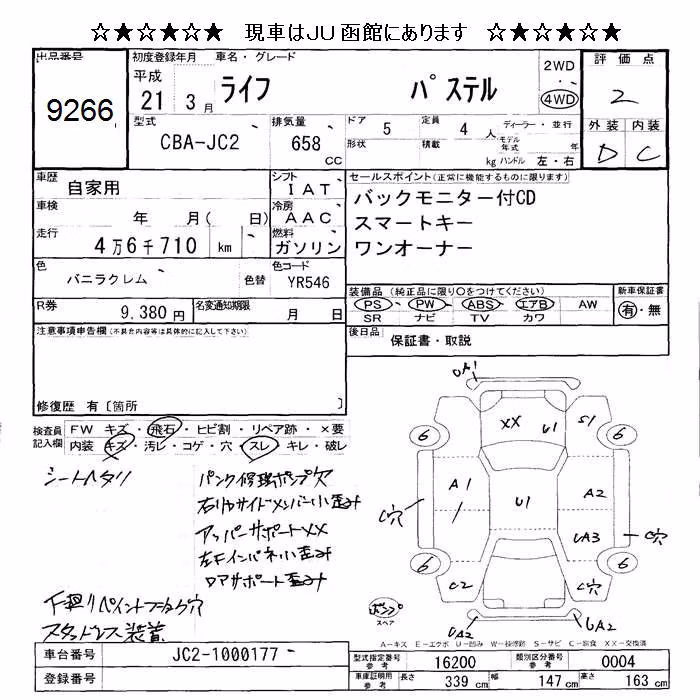 ☆★☆★☆★ 現車はJU函館にあります ☆★☆★☆★
出品番号 9266
初度登録年月 車名・グレード
平成 21 3月 ライフ パステル
2WD ・ 4WD
評価点 2
型式 CBA-JC2
排気量 658 CC
ドア 5 定員 4 人
形状 積載 kg
ディーラー・並行
モデル年式 年
ハンドル 左・右
外装 内装
D C
車歴 自家用
シフト IAT
車検 年 月( 日)
冷房 AAC
走行 4万6千710 km
燃料 ガソリン
色 バニラクレム 色替
色コード YR546
R券 9.380円
名変通知期限 月 日
セールスポイント(正常に機能するものに限ります)
バックモニター付CD
スマートキー
ワンオーナー
装備品(純正品に限り○をつけてください)
PS・PW・ABS・エアB AW
SR ナビ TV カワ
新車保証書
有・無
後日品 保証書・取説
注意事項申告欄(不具合内容等は具体的に記入して下さい)
修復歴 有〔箇所 〕
検査員記入欄
FW キズ・飛石・ヒビ割・リペア跡・×要
内装 キズ・汚レ・コゲ・穴・スレ・キレ・破レ
シートヘタリ
パンク修理ポンプ穴
右リヤサイドメンバー小歪み
アッパーサポートXX
左Fインパネ小歪み
ロアサポート歪み
下廻りペイントフータク穴
スタットレス装着
UA1
XX U1 S1
6 6
A1 U1 A2
C穴 UA3 C穴
6 6
C2 C穴
ポンプ
スペア
UA2 UA2
A－キズ E－エクボ U－凹み W－補修跡 S－サビ C－腐食 XX－交換済
車台番号 JC2-1000177
登録番号
型式指定番号参考 16200 類別区分番号参考 0004
車庫証明用参考 長さ 339 cm 幅 147 cm 高さ 163 cm